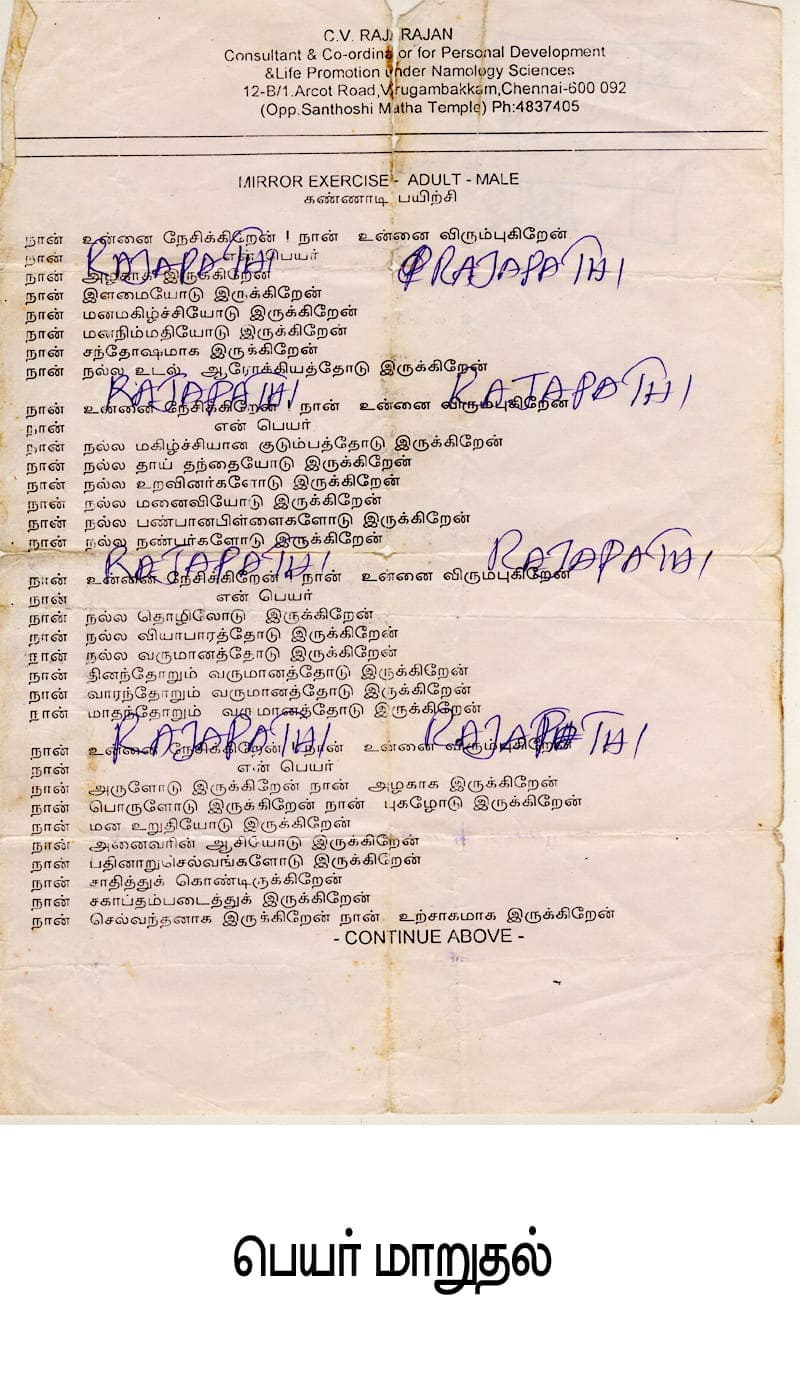 C.V. RAJARAJAN
Consultant & Co-ordinator for Personal Development
&Life Promotion under Namology Sciences
12-B/1.Arcot Road,Virugambakkam,Chennai-600 092
(Opp.Santhoshi Matha Temple) Ph:4837405
MIRROR EXERCISE - ADULT - MALE
கண்ணாடி பயிற்சி
நான் உன்னை நேசிக்கிறேன் ! நான் உன்னை விரும்புகிறேன்
நான் RAJAPATHI என் பெயர் RAJAPATHI
நான் அழகாக இருக்கிறேன்
நான் இளமையோடு இருக்கிறேன்
நான் மனமகிழ்ச்சியோடு இருக்கிறேன்
நான் மனநிம்மதியோடு இருக்கிறேன்
நான் சந்தோஷமாக இருக்கிறேன்
நான் நல்ல உடல் ஆரோக்கியத்தோடு இருக்கிறேன்
RAJAPATHI RAJAPATHI
நான் உன்னை நேசிக்கிறேன் ! நான் உன்னை விரும்புகிறேன்
நான் என் பெயர்
நான் நல்ல மகிழ்ச்சியான குடும்பத்தோடு இருக்கிறேன்
நான் நல்ல தாய் தந்தையோடு இருக்கிறேன்
நான் நல்ல உறவினர்களோடு இருக்கிறேன்
நான் நல்ல மனைவியோடு இருக்கிறேன்
நான் நல்ல பண்பானபிள்ளைகளோடு இருக்கிறேன்
நான் நல்ல நண்பர்களோடு இருக்கிறேன்
RAJAPATHI RAJAPATHI
நான் உன்னை நேசிக்கிறேன் ! நான் உன்னை விரும்புகிறேன்
நான் என் பெயர்
நான் நல்ல தொழிலோடு இருக்கிறேன்
நான் நல்ல வியாபாரத்தோடு இருக்கிறேன்
நான் நல்ல வருமானத்தோடு இருக்கிறேன்
நான் தினந்தோறும் வருமானத்தோடு இருக்கிறேன்
நான் வாரந்தோறும் வருமானத்தோடு இருக்கிறேன்
நான் மாதந்தோறும் வருமானத்தோடு இருக்கிறேன்
RAJAPATHI RAJAPATHI
நான் உன்னை நேசிக்கிறேன் ! நான் உன்னை விரும்புகிறேன்
நான் என் பெயர்
நான் அருளோடு இருக்கிறேன் நான் அழகாக இருக்கிறேன்
நான் பொருளோடு இருக்கிறேன் நான் புகழோடு இருக்கிறேன்
நான் மன உறுதியோடு இருக்கிறேன்
நான் அனைவரின் ஆசியோடு இருக்கிறேன்
நான் பதினாறுசெல்வங்களோடு இருக்கிறேன்
நான் சாதித்துக் கொண்டிருக்கிறேன்
நான் சகாப்தம்படைத்துக் இருக்கிறேன்
நான் செல்வந்தனாக இருக்கிறேன் நான் உற்சாகமாக இருக்கிறேன்
- CONTINUE ABOVE -
பெயர் மாறுதல்